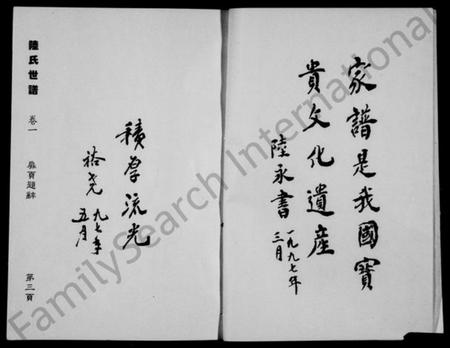 家譜是我國寶
貴文化遺產
陸永書
一九九七年
三月
積厚流光
裕堯
九七年
五月
陸氏世譜
卷一
扉頁題辭
第三頁
FamilySearch International